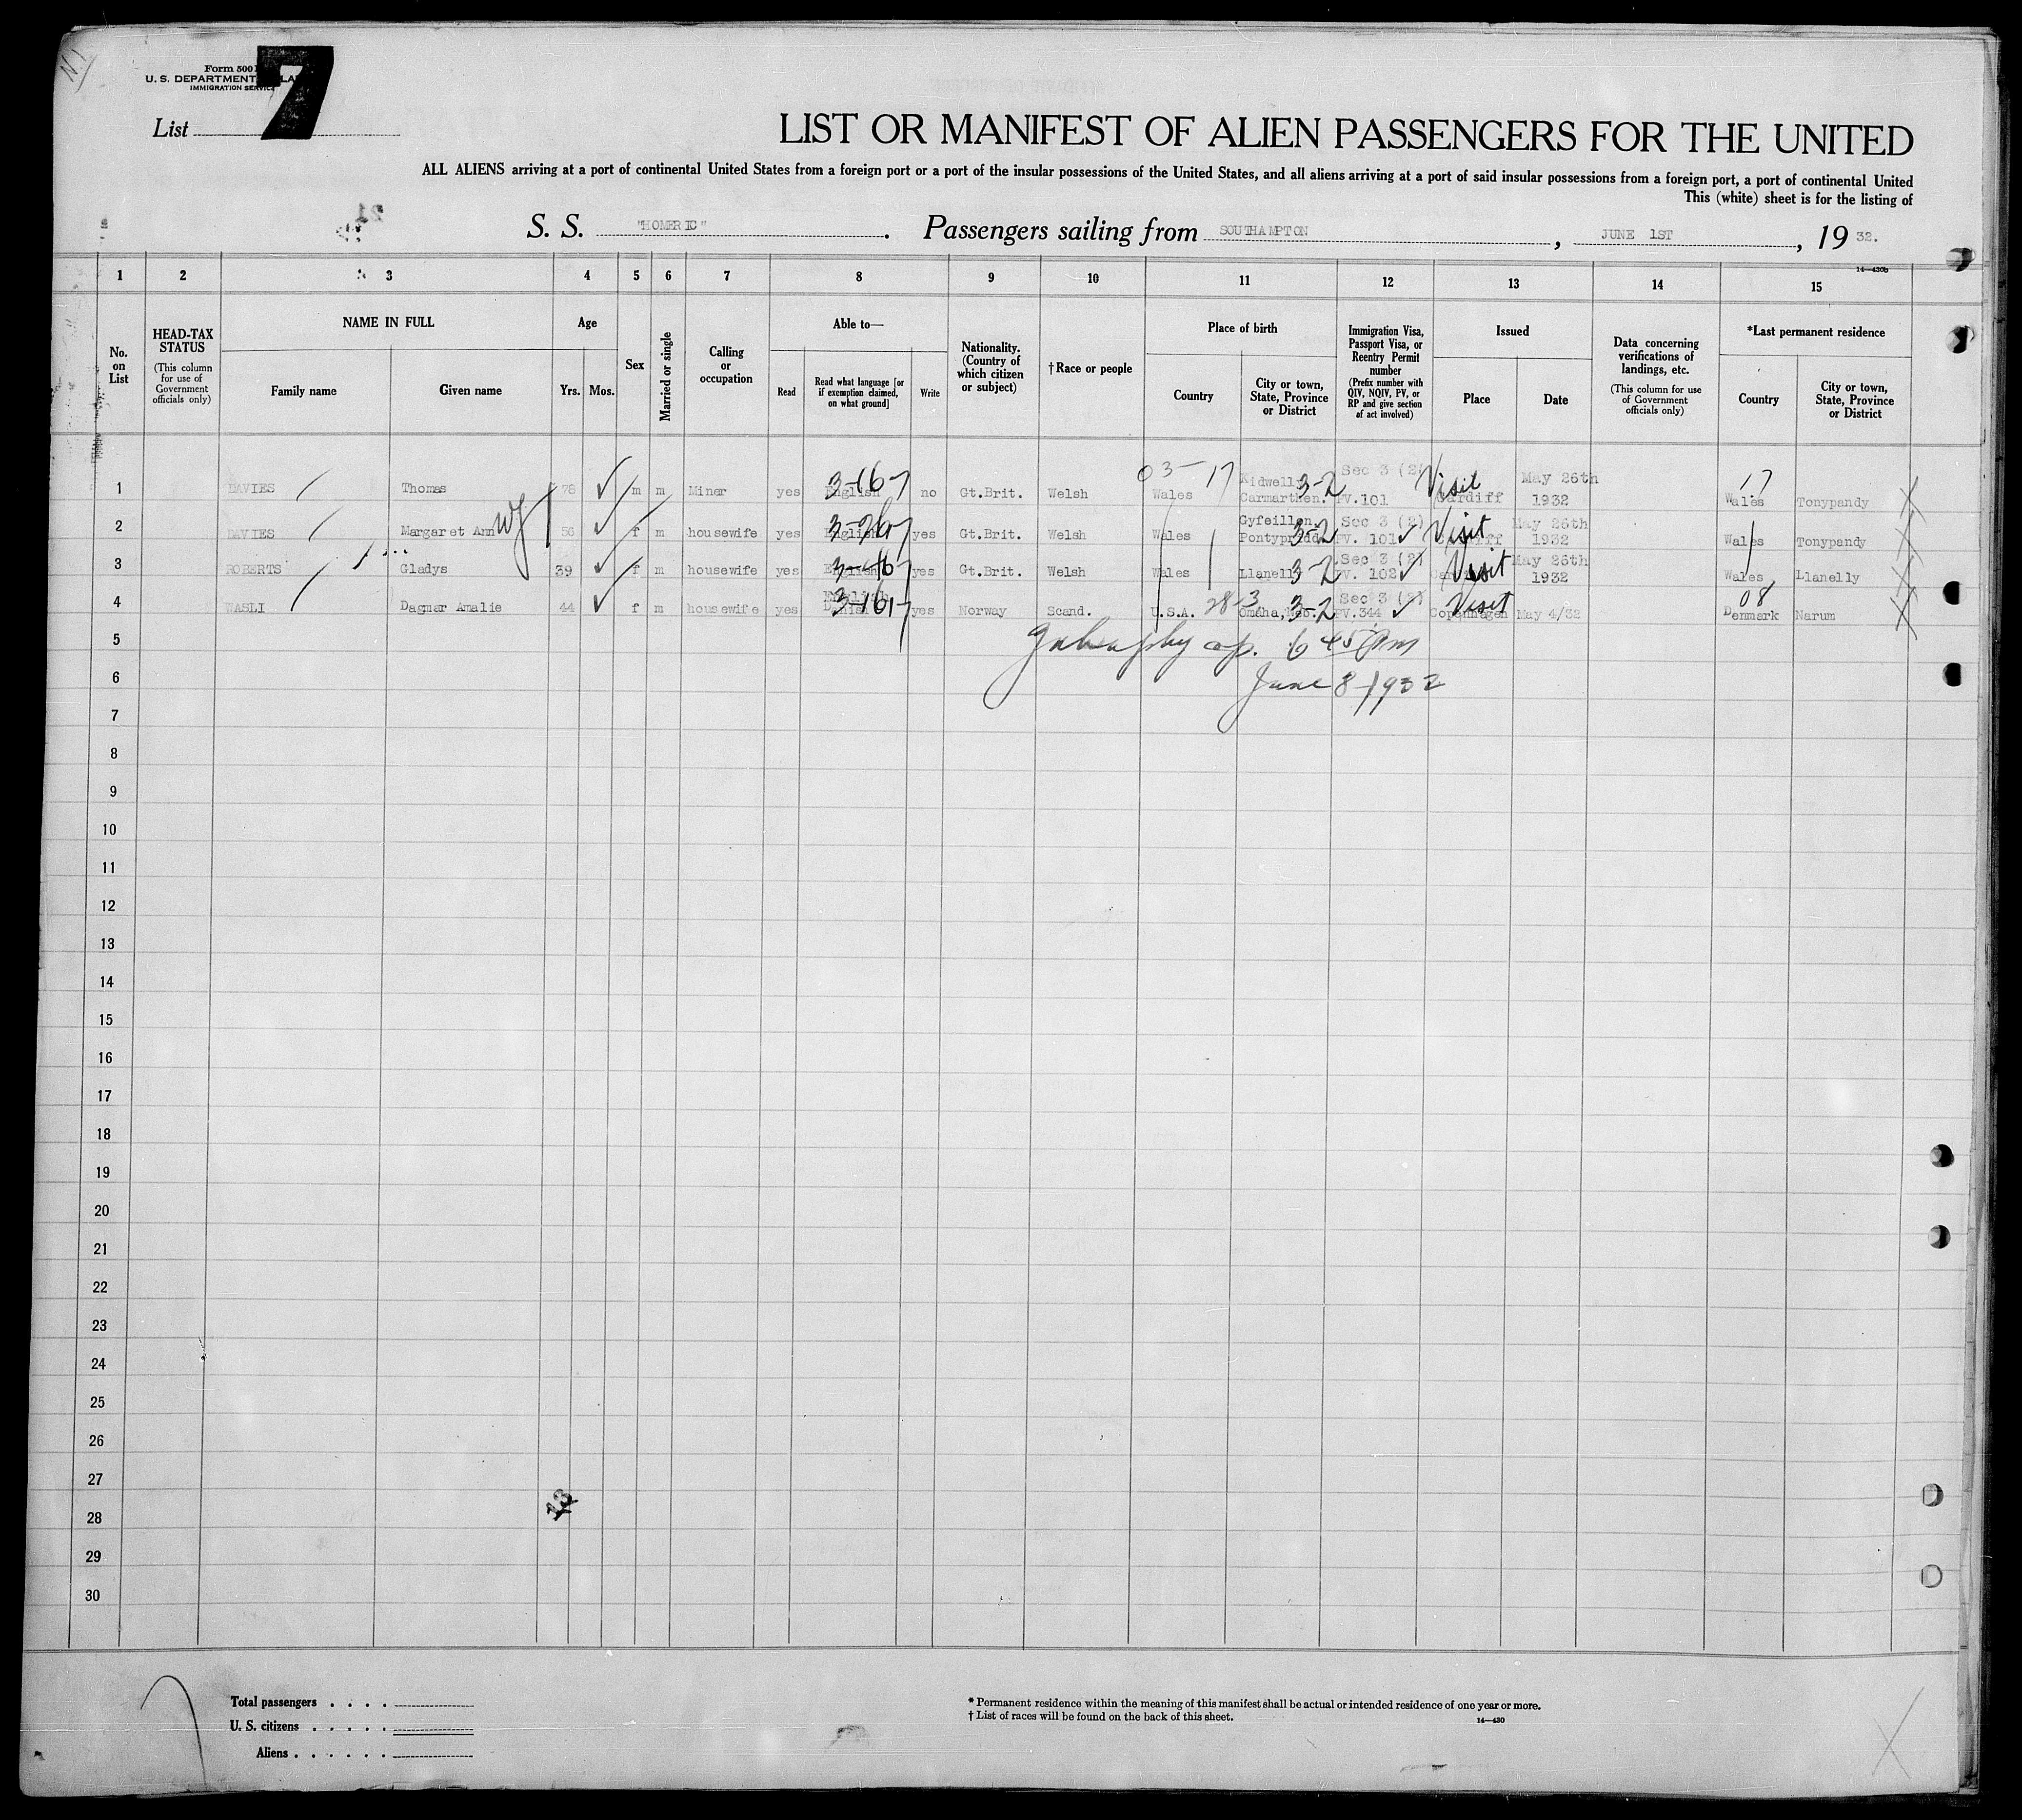 Form 500
U. S. DEPARTMENT
IMMIGRATION SERVICE
List 7
LIST OR MANIFEST OF ALIEN PASSENGERS FOR THE UNITED
ALL ALIENS arriving at a port of continental United States from a foreign port or a port of the insular possessions of the United States, and all aliens arriving at a port of said insular possessions from a foreign port, a port of continental United
This (white) sheet is for the listing of
S. S. "HOMERIC". Passengers sailing from SOUTHAMPTON, JUNE 1ST, 19 32.
14—430b
1 2 3 4 5 6 7 8 9 10 11 12 13 14 15
No. on List
HEAD-TAX STATUS (This column for use of Government officials only)
NAME IN FULL
Family name
Given name
Age
Yrs.
Mos.
Sex
Married or single
Calling or occupation
Able to—
Read
Read what language [or if exemption claimed, on what ground]
Write
Nationality. (Country of which citizen or subject)
†Race or people
Place of birth
Country
City or town, State, Province or District
Immigration Visa, Passport Visa, or Reentry Permit number (Prefix number with QIV, NQIV, PV, or RP and give section of act involved)
Issued
Place
Date
Data concerning verifications of landings, etc. (This column for use of Government officials only)
*Last permanent residence
Country
City or town, State, Province or District
03-17 Sec 3 (2) May 26th 17
1 DAVIES Thomas 78 m m Miner yes English 3-167 no Gt.Brit. Welsh Wales Kidwelly Carmarthen. 3-2 PV.101 Cardiff Visit 1932 Wales Tonypandy
2 DAVIES Margaret Ann 56 f m housewife yes English yes Gt.Brit. Welsh Wales Gyfeillon Pontypridd 3-2 Sec 3 (2) PV. 101 Visit May 26th 1932 Wales Tonypandy
3 ROBERTS Gladys 39 f m housewife yes English yes Gt.Brit. Welsh Wales Llanelly 3-2 Sec 3 (2) PV. 102 Visit May 26th 1932 Wales Llanelly
4 WASLI Dagmar Amalie 44 f m housewife yes English yes Norway Scand. U.S.A. 28-3 Omaha, 3-2 Sec 3 (2) PV.344 Copenhagen Visit May 4/32 08 Denmark Narum
5 6 45 Pm
6 June 8-1932
7
8
9
10
11
12
13
14
15
16
17
18
19
20
21
22
23
24
25
26
27
28
29
30
Total passengers
U. S. citizens
Aliens
* Permanent residence within the meaning of this manifest shall be actual or intended residence of one year or more.
† List of races will be found on the back of this sheet.
14—430